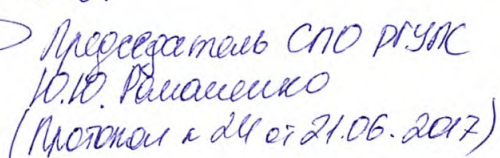 Председатель СПО РГУПС
Ю.Ю. Романенко
(Протокол № 24 от 21.06.2017)